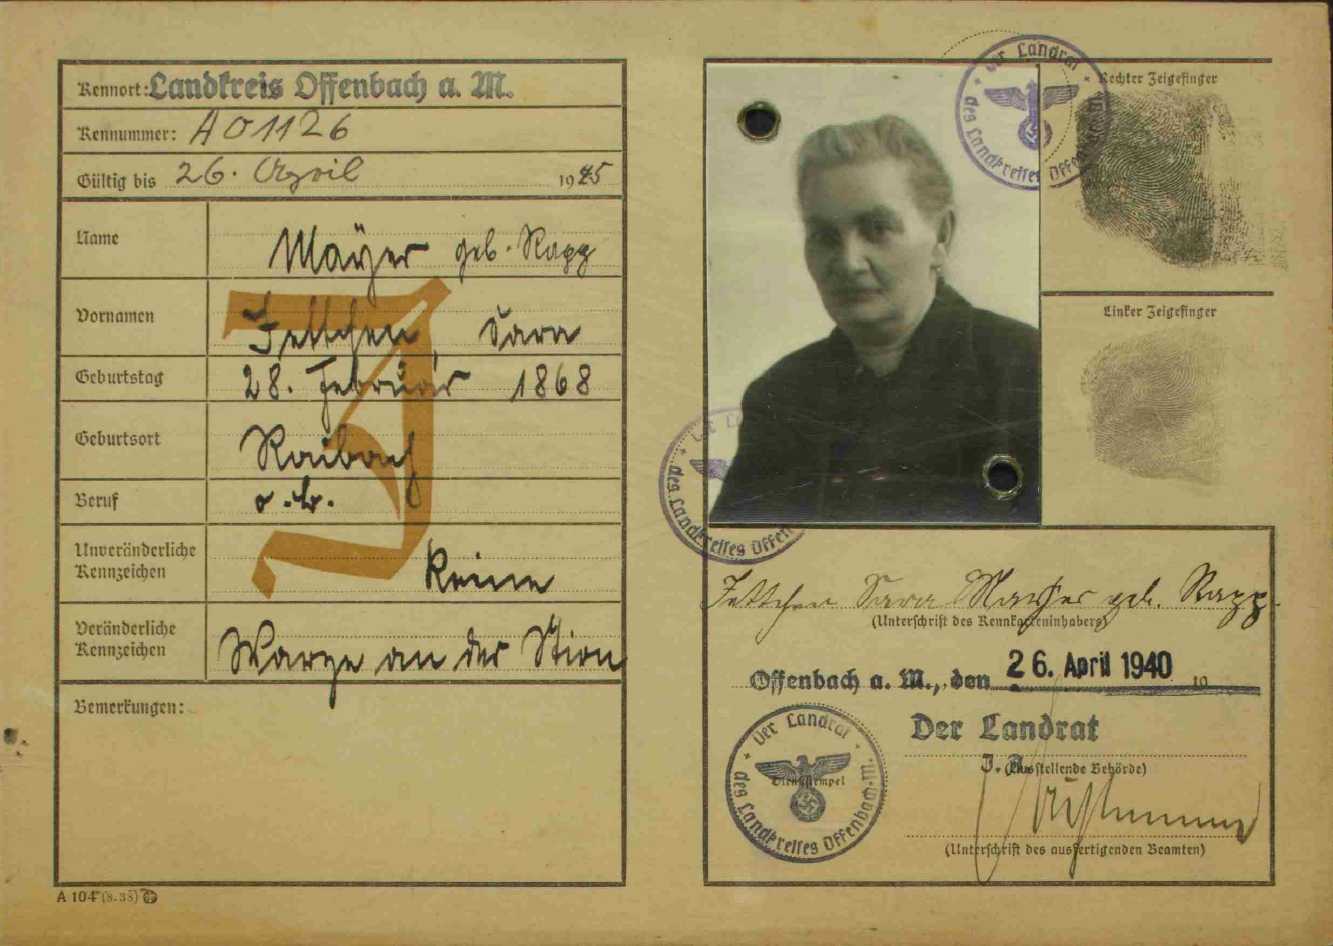 Kennort: Landkreis Offenbach a. M.
Kennummer: A 01126
Gültig bis 26. April 1945
Name Mayer geb. Rapp
Vornamen Jettchen Sara
Geburtstag 28. Februar 1868
Geburtsort Raibach
Beruf o. B.
Unveränderliche
Kennzeichen keine
Veränderliche
Kennzeichen Warze an der Stirn
Bemerkungen:
J
A 104 (8.38)
Der Landrat
des Landkreises Offenbach
Rechter Zeigefinger
Linker Zeigefinger
des Landkreises Offen
Jettchen Sara Mayer geb. Rapp
(Unterschrift des Kennkarteninhabers)
Offenbach a. M., den 26. April 1940 19
Der Landrat
J. A.
(Ausstellende Behörde)
Der Landrat
des Landkreises Offenbach a. M.
Dienststempel
(Unterschrift des ausfertigenden Beamten)